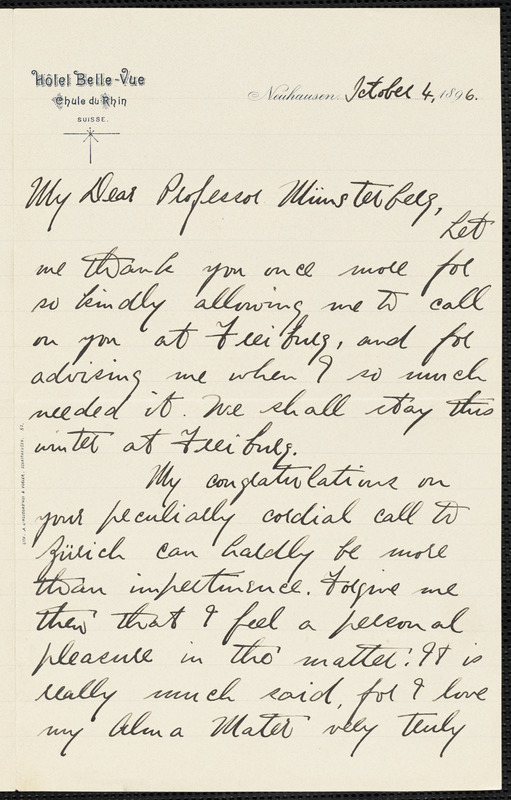 Hôtel Belle-Vue
Chute du Rhin
SUISSE.
Neuhausen, October 4, 1896.
My Dear Professor Münsterberg,
Let
me thank you once more for
so kindly allowing me to call
on you at Freiburg, and for
advising me when I so much
needed it. We shall stay this
winter at Freiburg.
My congratulations on
your peculiarly cordial call to
Zürich can hardly be more
than impertinence. Forgive me
then that I feel a personal
pleasure in the matter. It is
really much said, for I love
my Alma Mater very truly